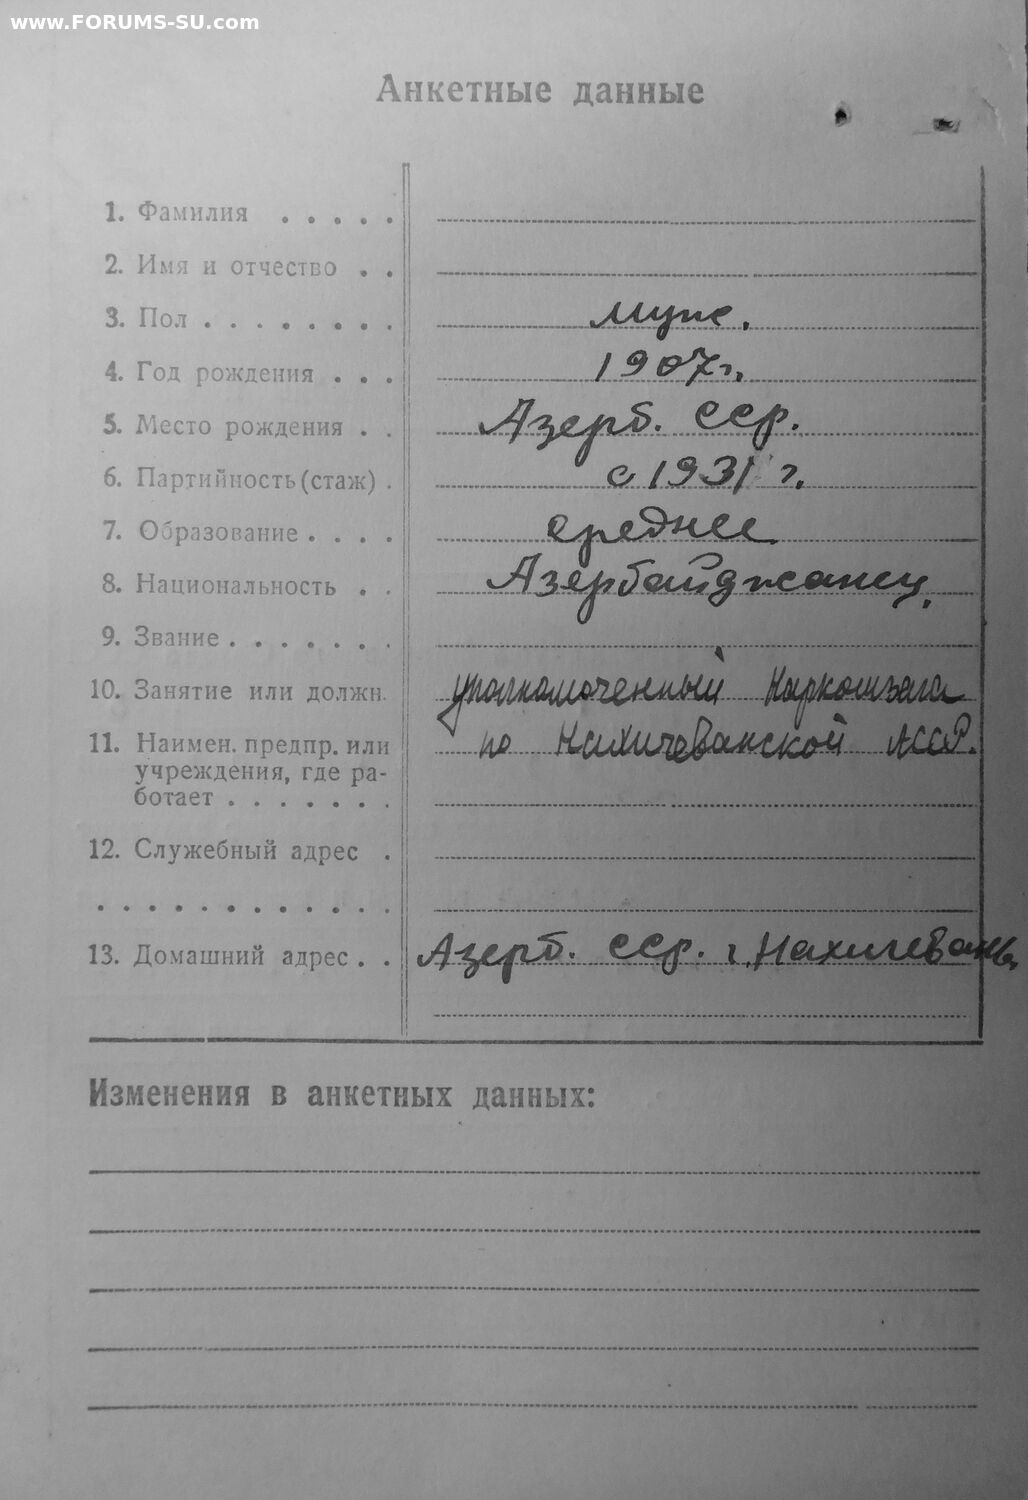 www.FORUMS-SU.com
Анкетные данные
1. Фамилия . . . . .
2. Имя и отчество . .
3. Пол . . . . . . . . муж.
4. Год рождения . . . 1907 г.
5. Место рождения . . Азерб. ССР.
6. Партийность (стаж) . с 1931 г.
7. Образование . . . . среднее
8. Национальность . . Азербайджанец.
9. Звание . . . . . . .
10. Занятие или должн. уполномоченный Наркомзага
11. Наимен. предпр. или по Нахичеванской АССР.
учреждения, где ра-
ботает . . . . . . .
12. Служебный адрес .
. . . . . . . . . . . .
13. Домашний адрес . . Азерб. ССР. г. Нахичевань.
Изменения в анкетных данных: